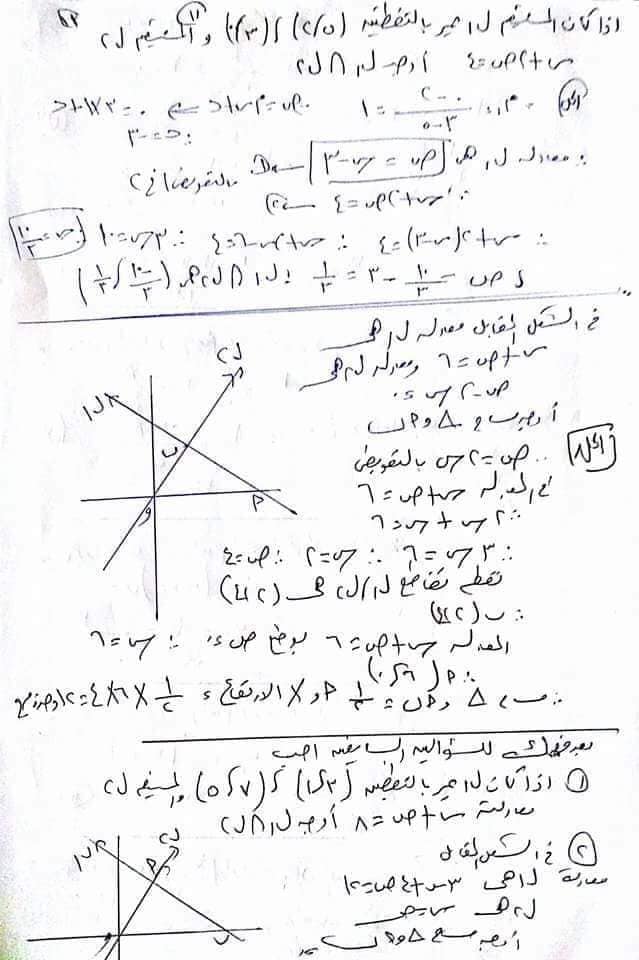 اذا كان المستقيم ل١ يمر بالنقطتين (٥،٢) ، (٣،٠) والمستقيم ل٢
س+٢ص=٤ أوجد ل١ ∩ ل٢
الحل م = (٢-٠)/(٥-٣) = ١ ∴ ص=م س+جـ ⇐ ٠=١×٣+جـ
∴ جـ=-٣
∴ معادلة ل١ هى ص = س-٣ ← ① بالتعويض فى ٢
∴ س+٢ص=٤ ← ②
∴ س+٢(س-٣)=٤ ∴ س+٢س-٦=٤ ∴ ٣س=١٠ ∴ س=١٠/٣
، ص = ١٠/٣ - ٣ = ١/٣ ∴ ل١ ∩ ل٢ هى (١٠/٣ ، ١/٣)
فى الشكل المقابل معادلة ل١ هى
س+ص=٦ ومعادلة ل٢ هى
ص-٢س=٠
أوجد مساحة △ و م ب
الحل
∴ ص=٢س بالتعويض
فى المعادلة س+ص=٦
∴ ٢س+س=٦
∴ ٣س=٦ ∴ س=٢ ∴ ص=٤
نقطة تقاطع ل١، ل٢ هى (٢،٤)
∴ ب (٢،٤)
المعادلة س+ص=٦ بوضع ص=٠ ∴ س=٦
∴ م (٦،٠)
∴ مساحة △ و م ب = ١/٢ م و × الارتفاع = ١/٢ × ٦ × ٤=١٢ وحدة مربعة
ل١
ل٢
ب
م
و
بعد فهمك للسؤالين السابقين اجب
① اذا كان ل١ يمر بالنقطتين (٣،١) ، (٧،٥) والمستقيم ل٢
معادلته س+ص=٨ أوجد ل١ ∩ ل٢
② فى الشكل المقابل
معادلة ل١ هى ٣س+٤ص=١٢
ل٢ هى س=ص
أوجد مساحة △ و م ب
ل١
ل٢
م
ب
و